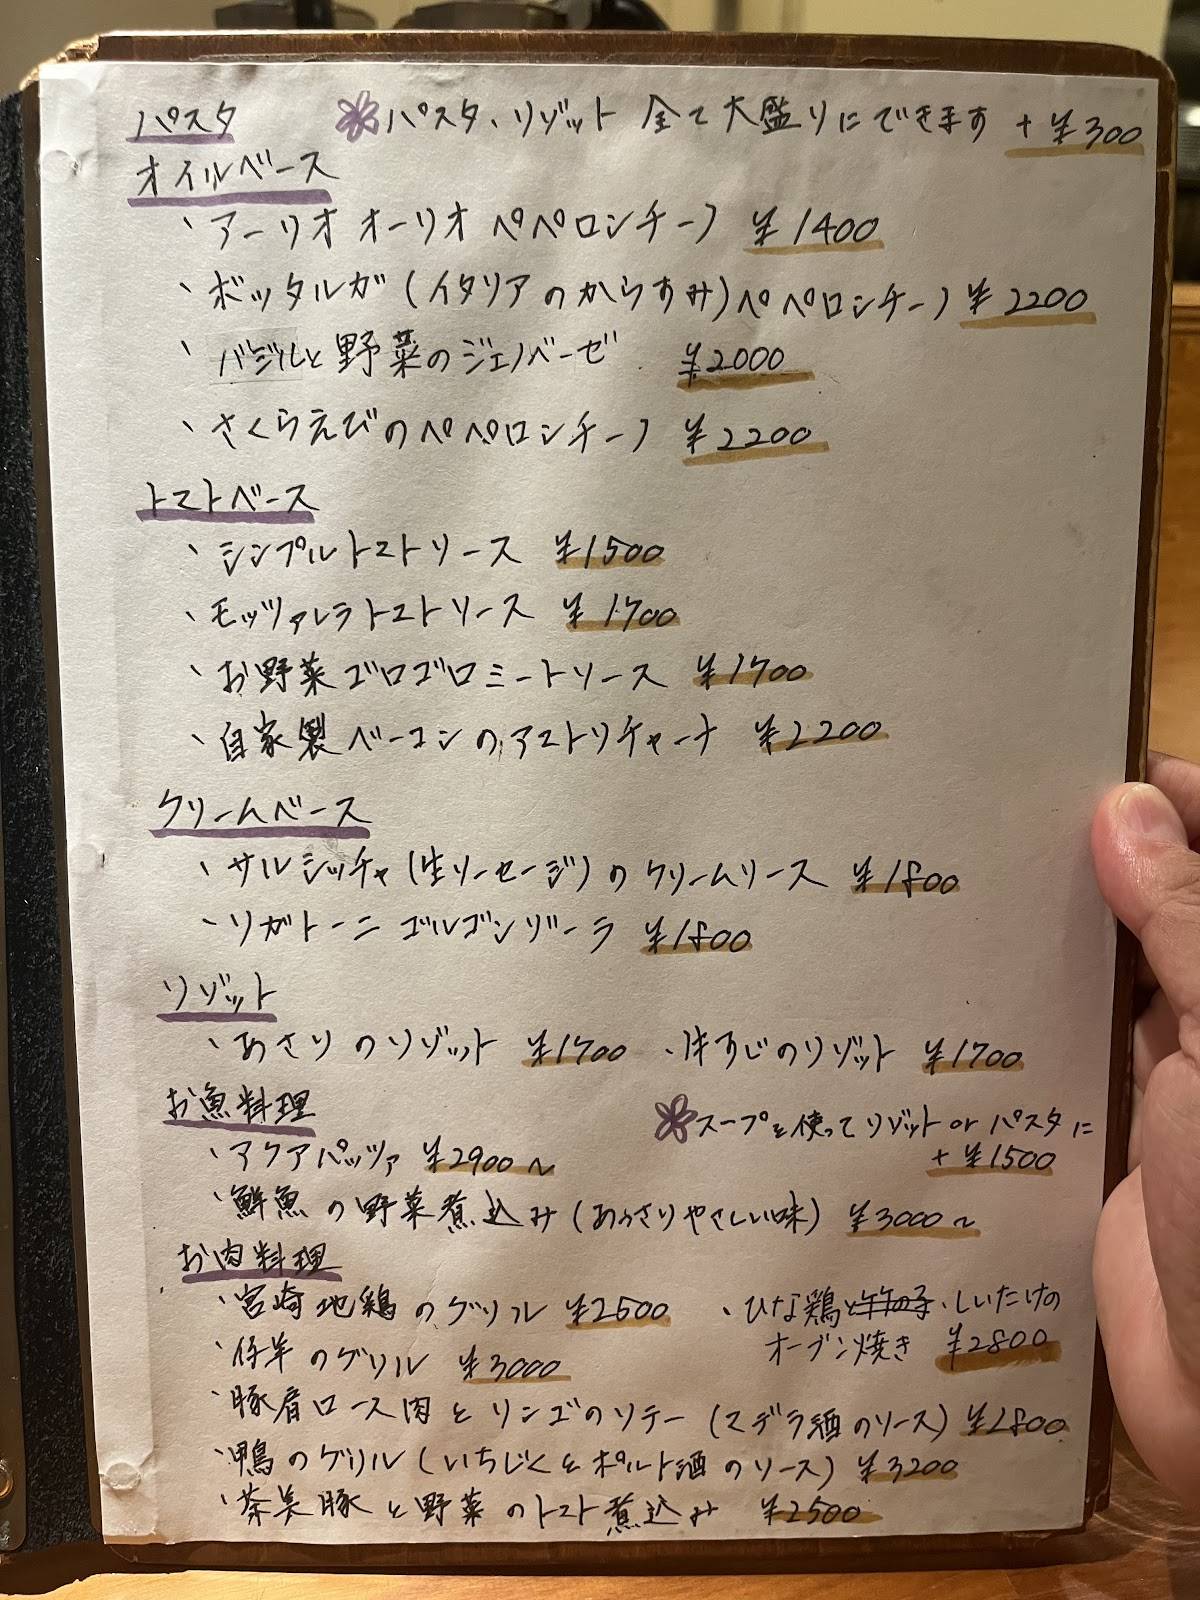 パスタ ✽パスタ、リゾット 全て大盛りにできます +¥300
オイルベース
、アーリオ オーリオ ペペロンチーノ ¥1400
、ボッタルガ(イタリアのからすみ)ペペロンチーノ ¥2200
、バジルと野菜のジェノベーゼ ¥2000
、さくらえびのペペロンチーノ ¥2200
トマトベース
、シンプルトマトソース ¥1500
、モッツァレラトマトソース ¥1700
、お野菜ゴロゴロミートソース ¥1700
、自家製ベーコンのアマトリチャーナ ¥2200
クリームベース
、サルシッチャ(生ソーセージ)のクリームソース ¥1800
、リガトーニ ゴルゴンゾーラ ¥1800
リゾット
、あさりのリゾット ¥1700 、牛すじのリゾット ¥1700
お魚料理
✽スープを使ってリゾット or パスタに
、アクアパッツァ ¥2900~ +¥1500
、鮮魚の野菜煮込み(あっさりやさしい味) ¥3000~
お肉料理
、宮崎地鶏のグリル ¥2500 、ひな鶏と竹の子、しいたけの
オーブン焼き ¥2800
、仔羊のグリル ¥3000
、豚肩ロース肉とリンゴのソテー(マデラ酒のソース) ¥2800
、鴨のグリル(いちじくとポルト酒のソース) ¥3200
、茶美豚と野菜のトマト煮込み ¥2500